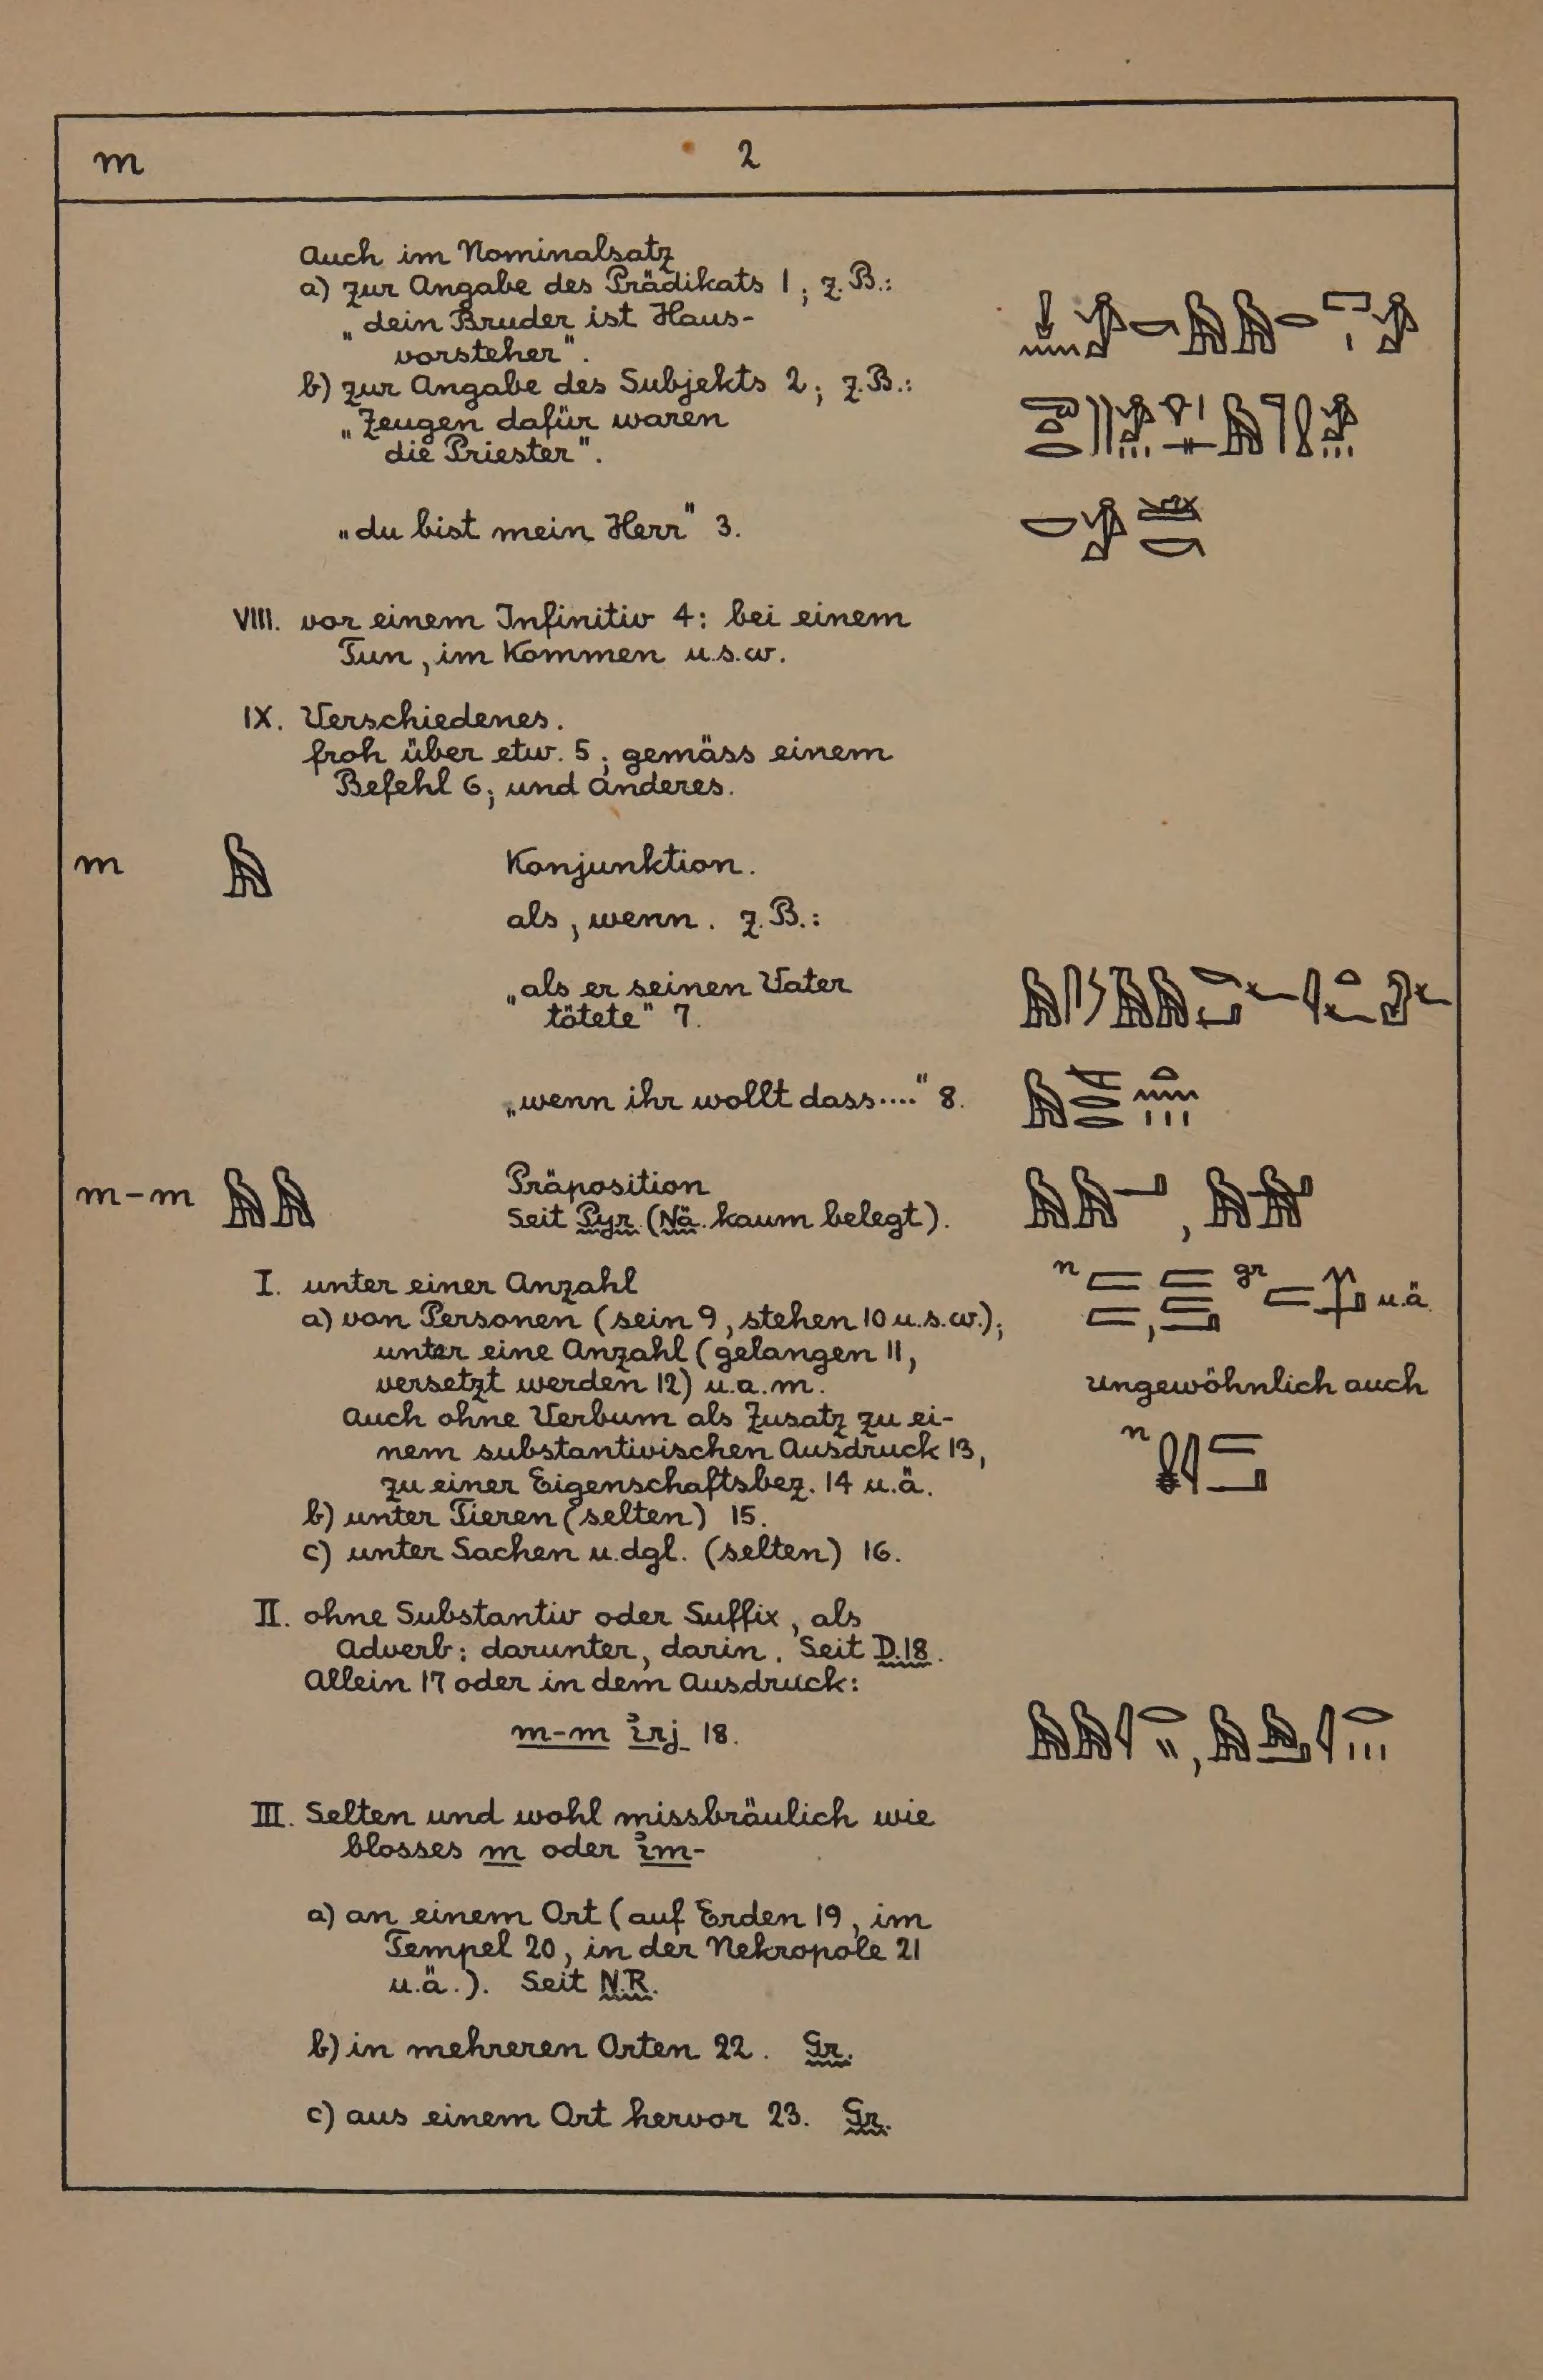 m 2
Auch im Nominalsatz
a) zur Angabe des Prädikats 1; z.B.:
„dein Bruder ist Haus-
vorsteher".
b) zur Angabe des Subjekts 2; z.B.:
„Zeugen dafür waren
die Priester".
„du bist mein Herr" 3.
VIII. vor einem Infinitiv 4: bei einem
Tun, im Kommen u.s.w.
IX. Verschiedenes.
froh über etw. 5; gemäss einem
Befehl 6; und anderes.
m Konjunktion.
als, wenn. z.B.:
„als er seinen Vater
tötete" 7.
„wenn ihr wollt dass...." 8.
m-m Präposition
Seit Pyr. (Nä. kaum belegt).
I. unter einer Anzahl
n gr u.ä.
a) von Personen (sein 9, stehen 10 u.s.w.);
unter eine Anzahl (gelangen 11,
versetzt werden 12) u.a.m.
ungewöhnlich auch
Auch ohne Verbum als Zusatz zu ei-
n
nem substantivischen Ausdruck 13,
zu einer Eigenschaftsbez. 14 u.ä.
b) unter Tieren (selten) 15.
c) unter Sachen u.dgl. (selten) 16.
II. ohne Substantiv oder Suffix, als
Adverb: darunter, darin. Seit D.18.
Allein 17 oder in dem Ausdruck:
m-m ı͗rj 18.
III. Selten und wohl missbräulich wie
blosses m oder ı͗m-
a) an einem Ort (auf Erden 19, im
Tempel 20, in der Nekropole 21
u.ä.). Seit N.R.
b) in mehreren Orten 22. Gr.
c) aus einem Ort hervor 23. Gr.